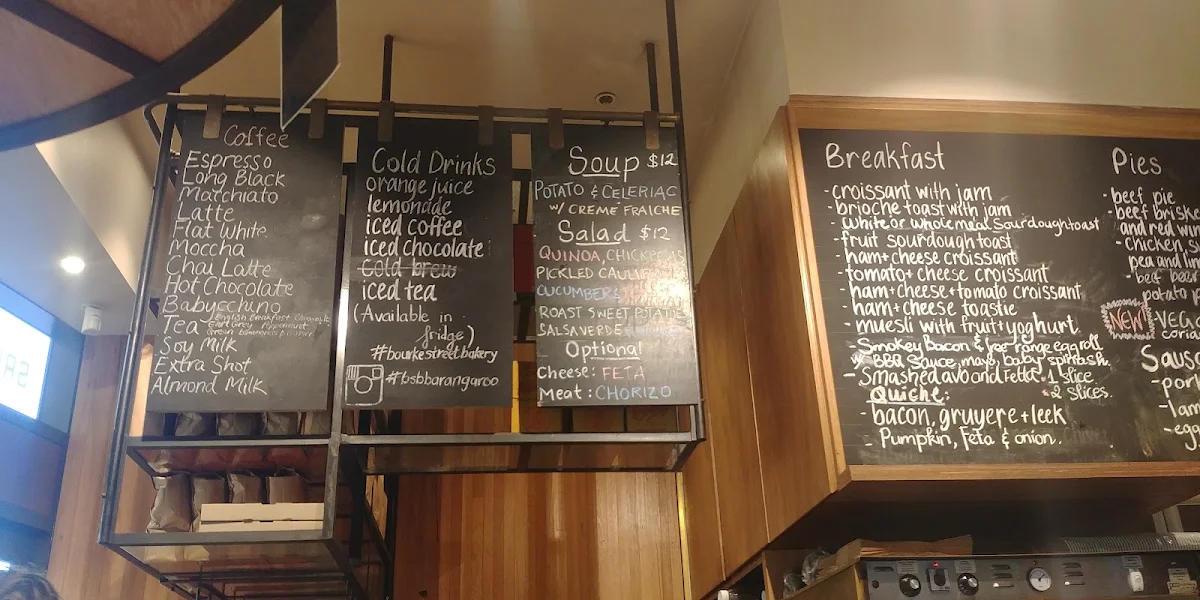 Coffee
Espresso
Long Black
Macchiato
Latte
Flat White
Moccha
Chai Latte
Hot Chocolate
Babycchino
Tea English Breakfast
Earl Grey Peppermint
Soy Milk
Extra Shot
Almond Milk
Cold Drinks
orange juice
lemonade
iced coffee
iced chocolate
cold brew
iced tea
(Available in
fridge)
#bourkestreetbakery
#bsbbarangaroo
Soup $12
POTATO & CELERIAC
W/ CREME FRAICHE
Salad $12
QUINOA, CHICKPEAS
PICKLED CAULIFLOWER
CUCUMBER &
ROAST SWEET POTATOE
SALSA VERDE
Optional
Cheese: FETA
Meat: CHORIZO
Breakfast
- croissant with jam
- brioche toast with jam
white or wholemeal sourdough toast
- fruit sourdough toast
- ham+cheese croissant
- tomato+cheese croissant
- ham+cheese+tomato croissant
- ham+cheese toastie
- muesli with fruit+yoghurt
- Smokey Bacon & free range egg roll
w/ BBQ Sauce, mayo, baby spinach
- Smashed avo and Fetta. 1 slice
2 slices.
Quiche:
- bacon, gruyere + leek
- Pumpkin, Feta & onion.
Pies
- beef pie
- beef brisk
and red win
- chicken, S
pea and
- beef
potato
NEW VEG
coria
Saus
- por
- lam
- egg